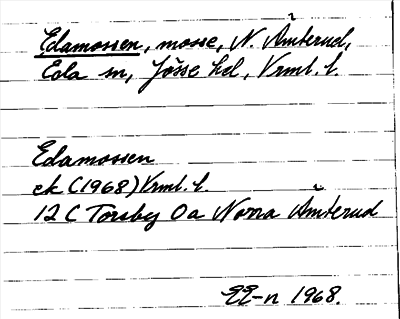 Edamossen, mosse, N. Åmterud,
Eda sn, Jösse hd, Vrml. l.
Edamossen
ek (1968) Vrml. l.
12 C Torsby 0a Norra Åmterud
EE-n 1968.